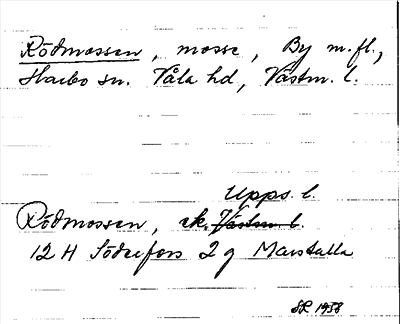 Rödmossen, mosse, By m.fl.,
Harbo sn. Våla hd, Västm. l.
Upps. l.
Rödmossen, ek. Västm l.
12 H Söderfors 2 g Marstalla
SR 1958